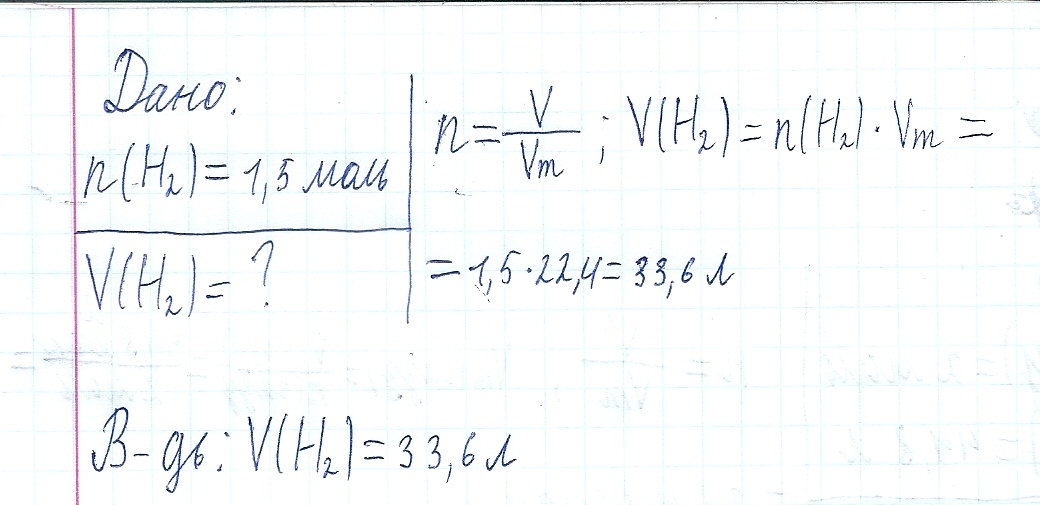 Дано:
n(H₂) = 1,5 моль
V(H₂) = ?
n = V/Vm ; V(H₂) = n(H₂) · Vm =
= 1,5 · 22,4 = 33,6 л
В-дь: V(H₂) = 33,6 л